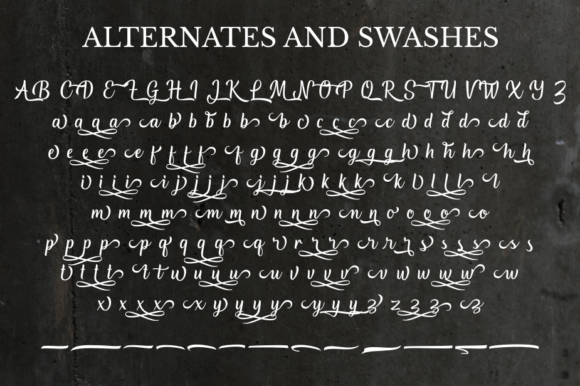 ALTERNATES AND SWASHES
A B C D E F G H I J K L M N O P Q R S T U V W X Y Z
a a a a a a b b b b b b b c c c c c c d d d d d d
e e e e e e f f f f f g g g g g g g g h h h h h h
i i i i i i j j j j j j j j k k k k k k l l l l l
m m m m m m m n n n n n n n o o o o o o
p p p p p p q q q q q q r r r r r r r s s s s s s
t t t t t t u u u u u u v v v v v v w w w w w w
x x x x x x y y y y y y y y z z z z z